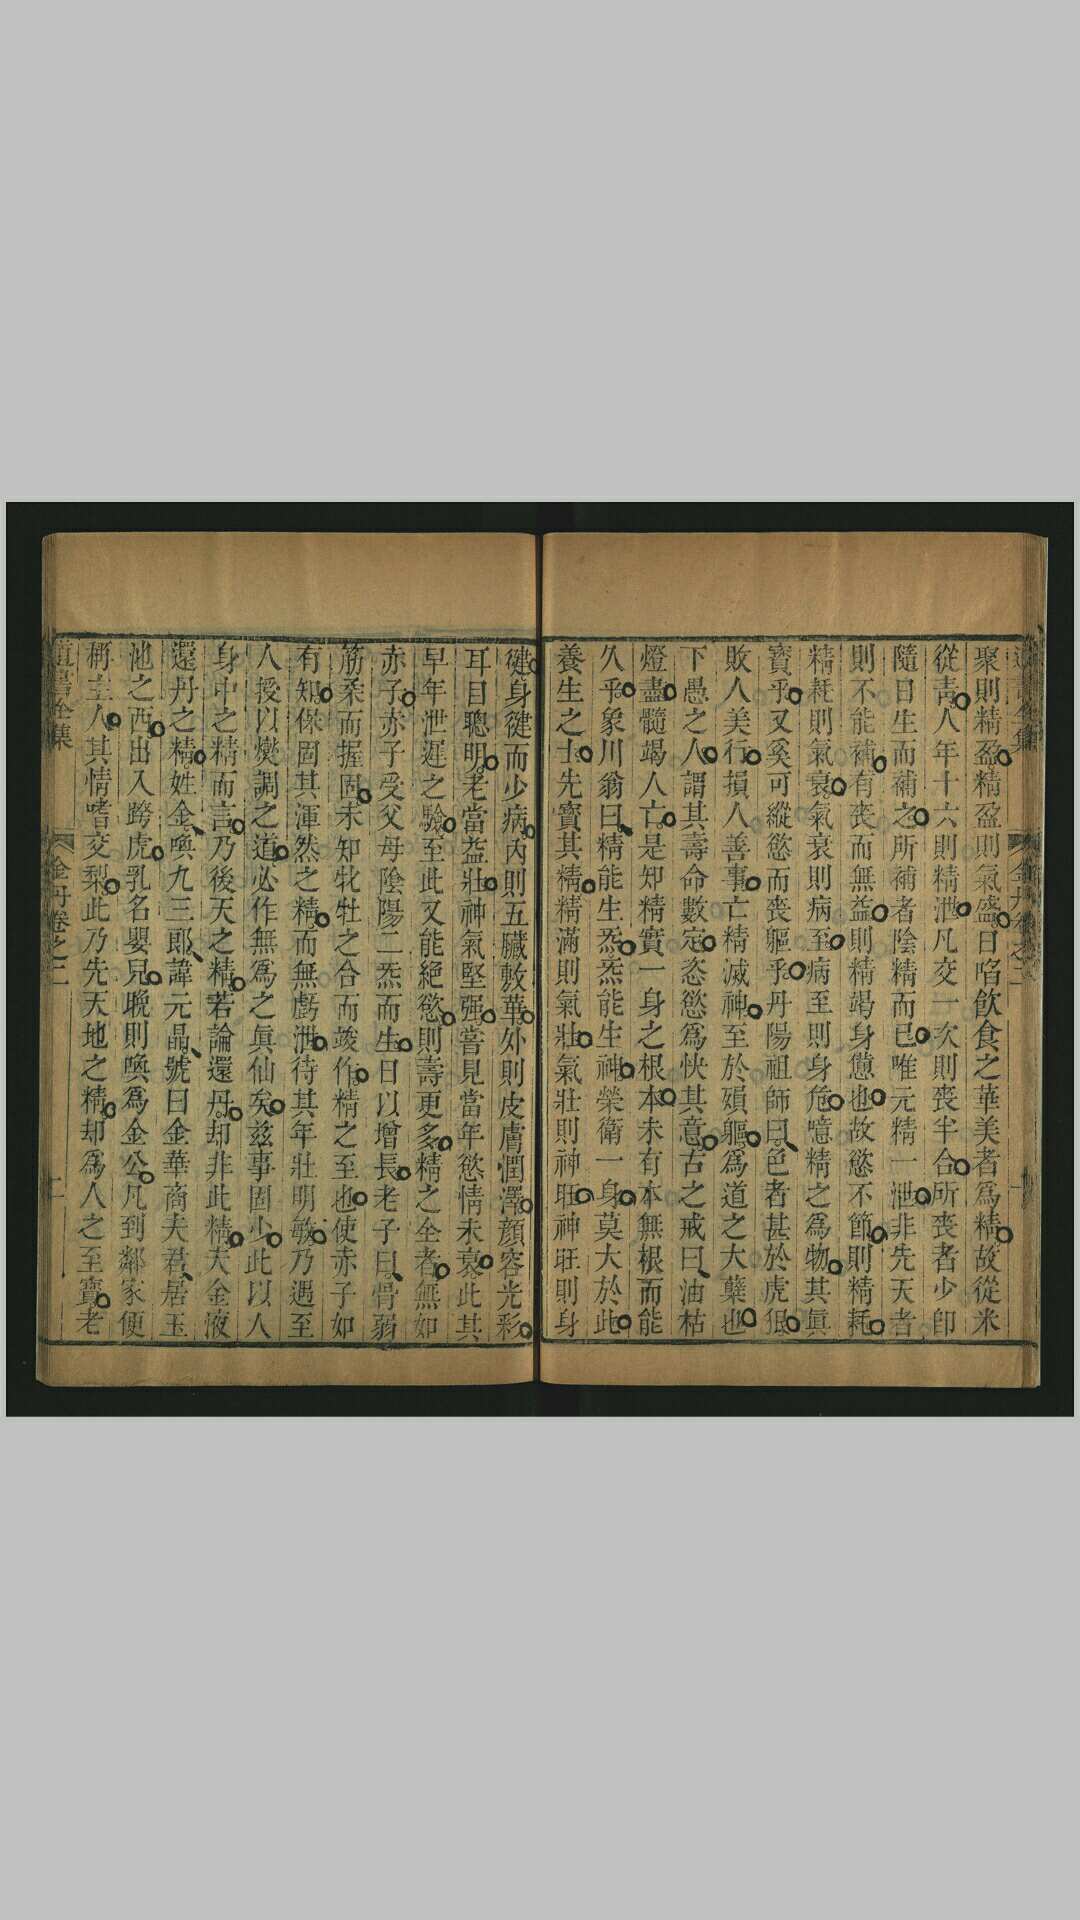 聚則精盈精盈則氣盛日啗飲食之華美者爲精故從米
從青人年十六則精泄凡交一次則喪半合所喪者少卽
隨日生而補之所補者陰精而已唯元精一泄非先天者
則不能補有喪而無益則精竭身憊也故慾不節則精耗
精耗則氣衰氣衰則病至病至則身危噫精之爲物其眞
寳乎又奚可縱慾而喪軀乎丹陽祖師曰色者甚於虎狼
敗人美行損人善事亡精滅神至於殞軀爲道之大孽也
下愚之人謂其壽命數定恣慾爲快其意古之戒曰油枯
燈盡髓竭人亡是知精實一身之根本未有本無根而能
久乎象川翁曰精能生炁炁能生神榮衛一身莫大於此
養生之士先寳其精精滿則氣壯氣壯則神旺神旺則身
健身健而少病內則五臟敷華外則皮膚潤澤顏容光彩
耳目聰明老當益壯神氣堅强嘗見當年慾情未衰此其
早年泄遲之驗至此又能絕慾則壽更多精之全者無如
赤子赤子受父母陰陽二炁而生日以增長老子曰骨弱
筋柔而握固未知牝牡之合而竣作精之至也使赤子如
有知保固其渾然之精而無虧泄待其年壯明敏乃遇至
人授以爕調之道必作無爲之眞仙矣兹事固少此以人
身中之精而言乃後天之精若論還丹却非此精夫金液
還丹之精姓金喚九三郎諱元晶號曰金華商夫君居玉
池之西出入跨虎乳名嬰兒晚則喚爲金公凡到鄰家便
稱主人其情嗜交梨此乃先天地之精却爲人之至寳老
道書全集 金丹卷之二 二